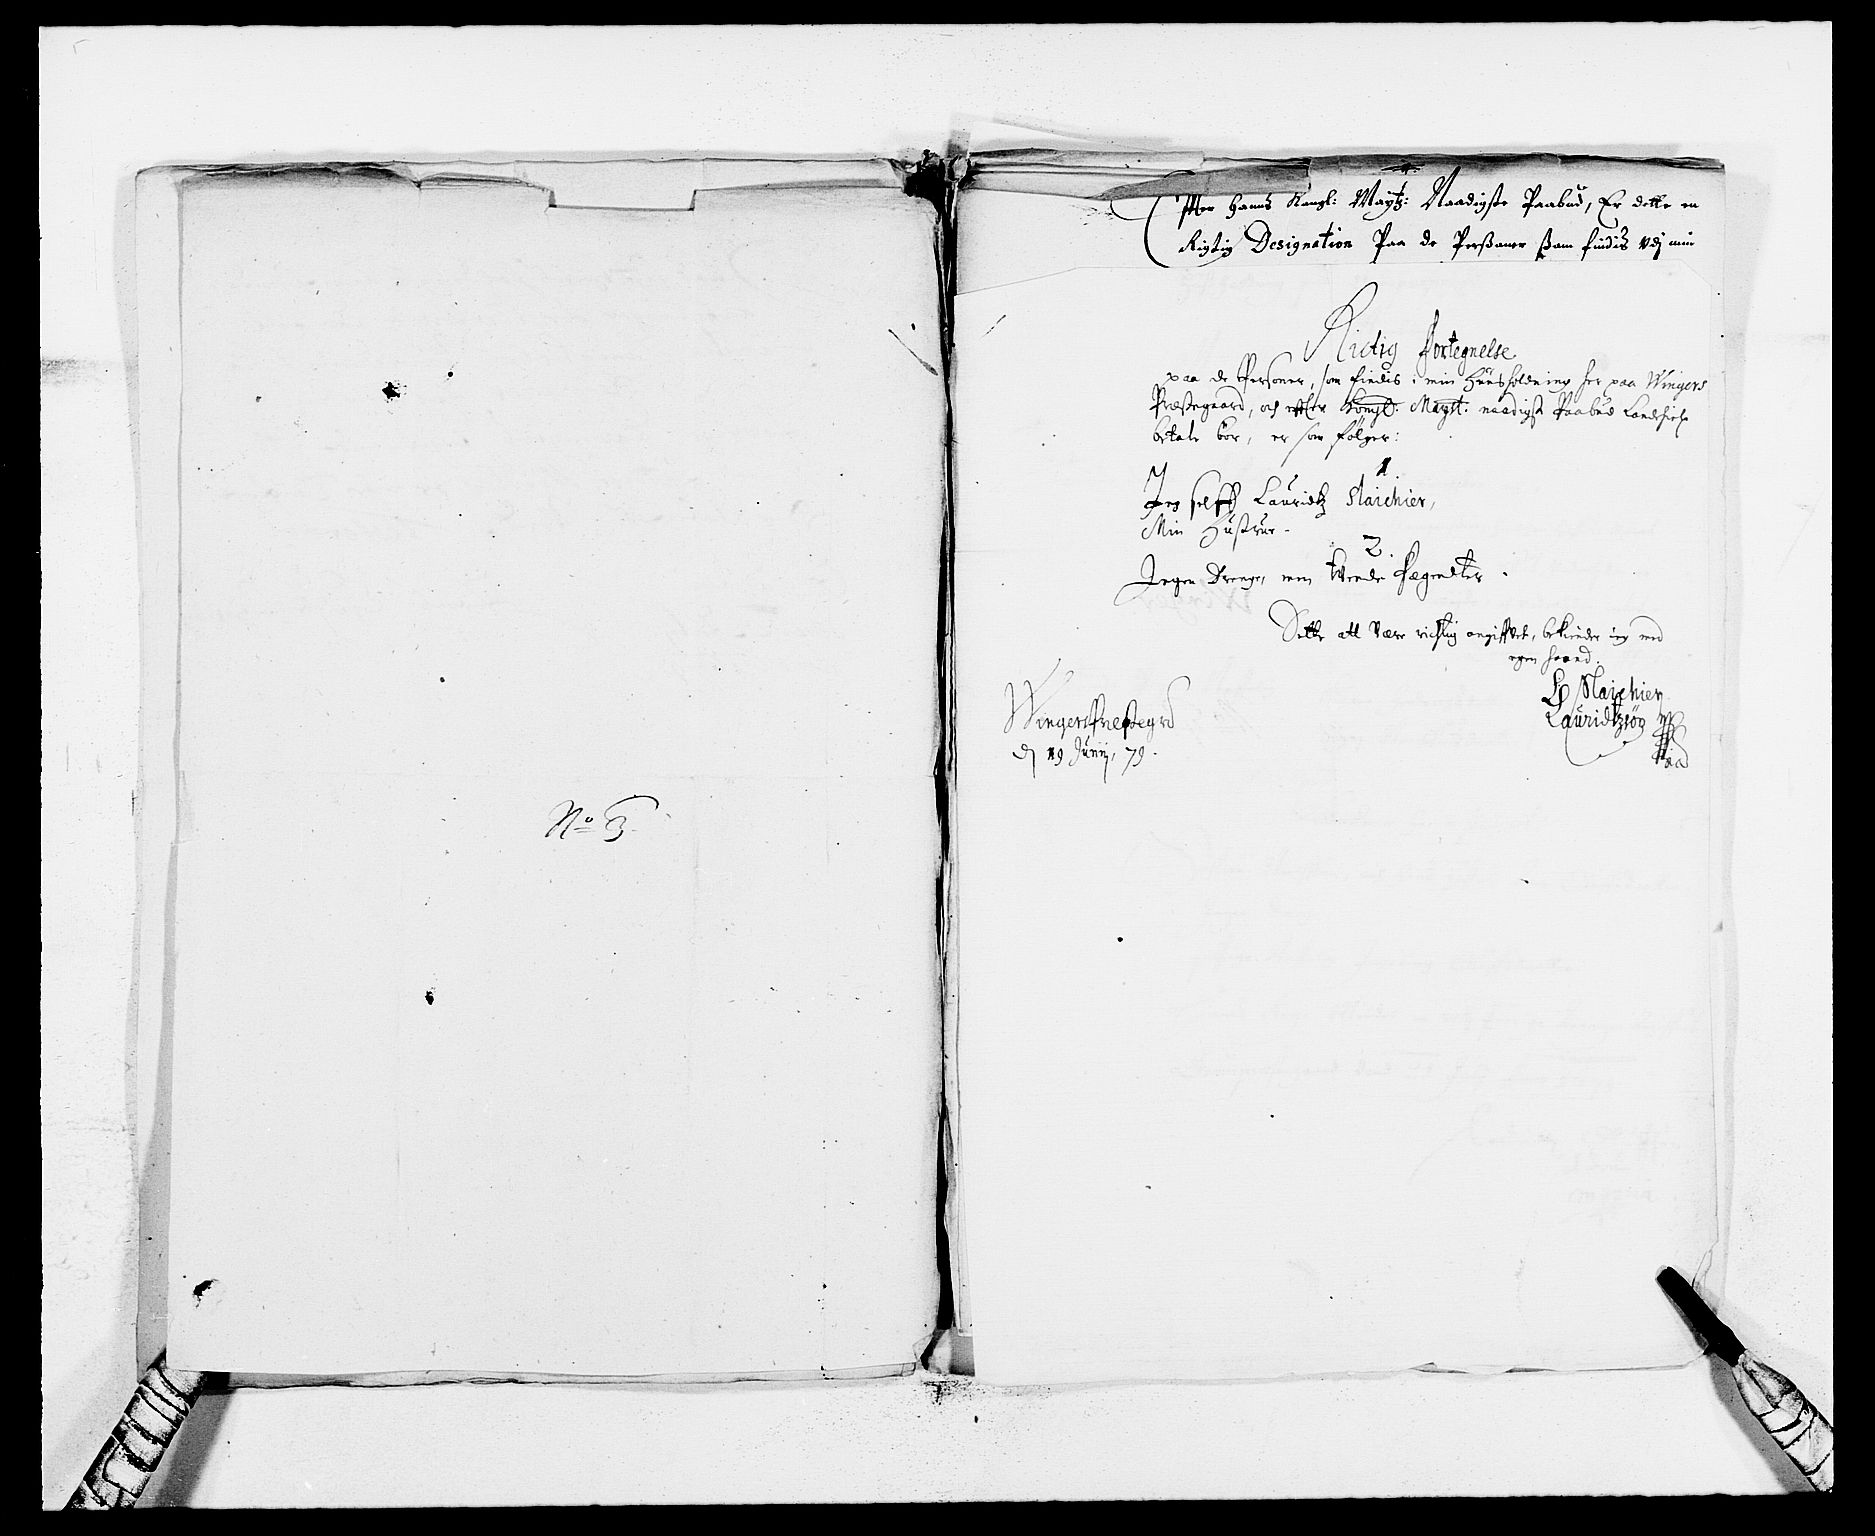 No 3
Efter Hanns Kongl: Mayts: Naadigste Paabud, Er dette en
Rigtig Designation Paa de Perßoner ßom findis udj min
Rictig Fortegnelse
paa de Personer, som findis i min Huusholdning her paa Wingers
Præstegaard, och efter Kongl: Mayst: naadigst Paabud Landhielp
betale bør, er som følger:
1.
Jeg selff Lauridtz Slaichier,
Min Hustrue.
2.
Ingen Drenge, men tvende Pægendter.
Dette att være richtig angiffvet, bekiender ieg med
egen haand.
Slaichier
Lauridtzsøn
Wingers Præstegrd
dj 19 Junij, 79.